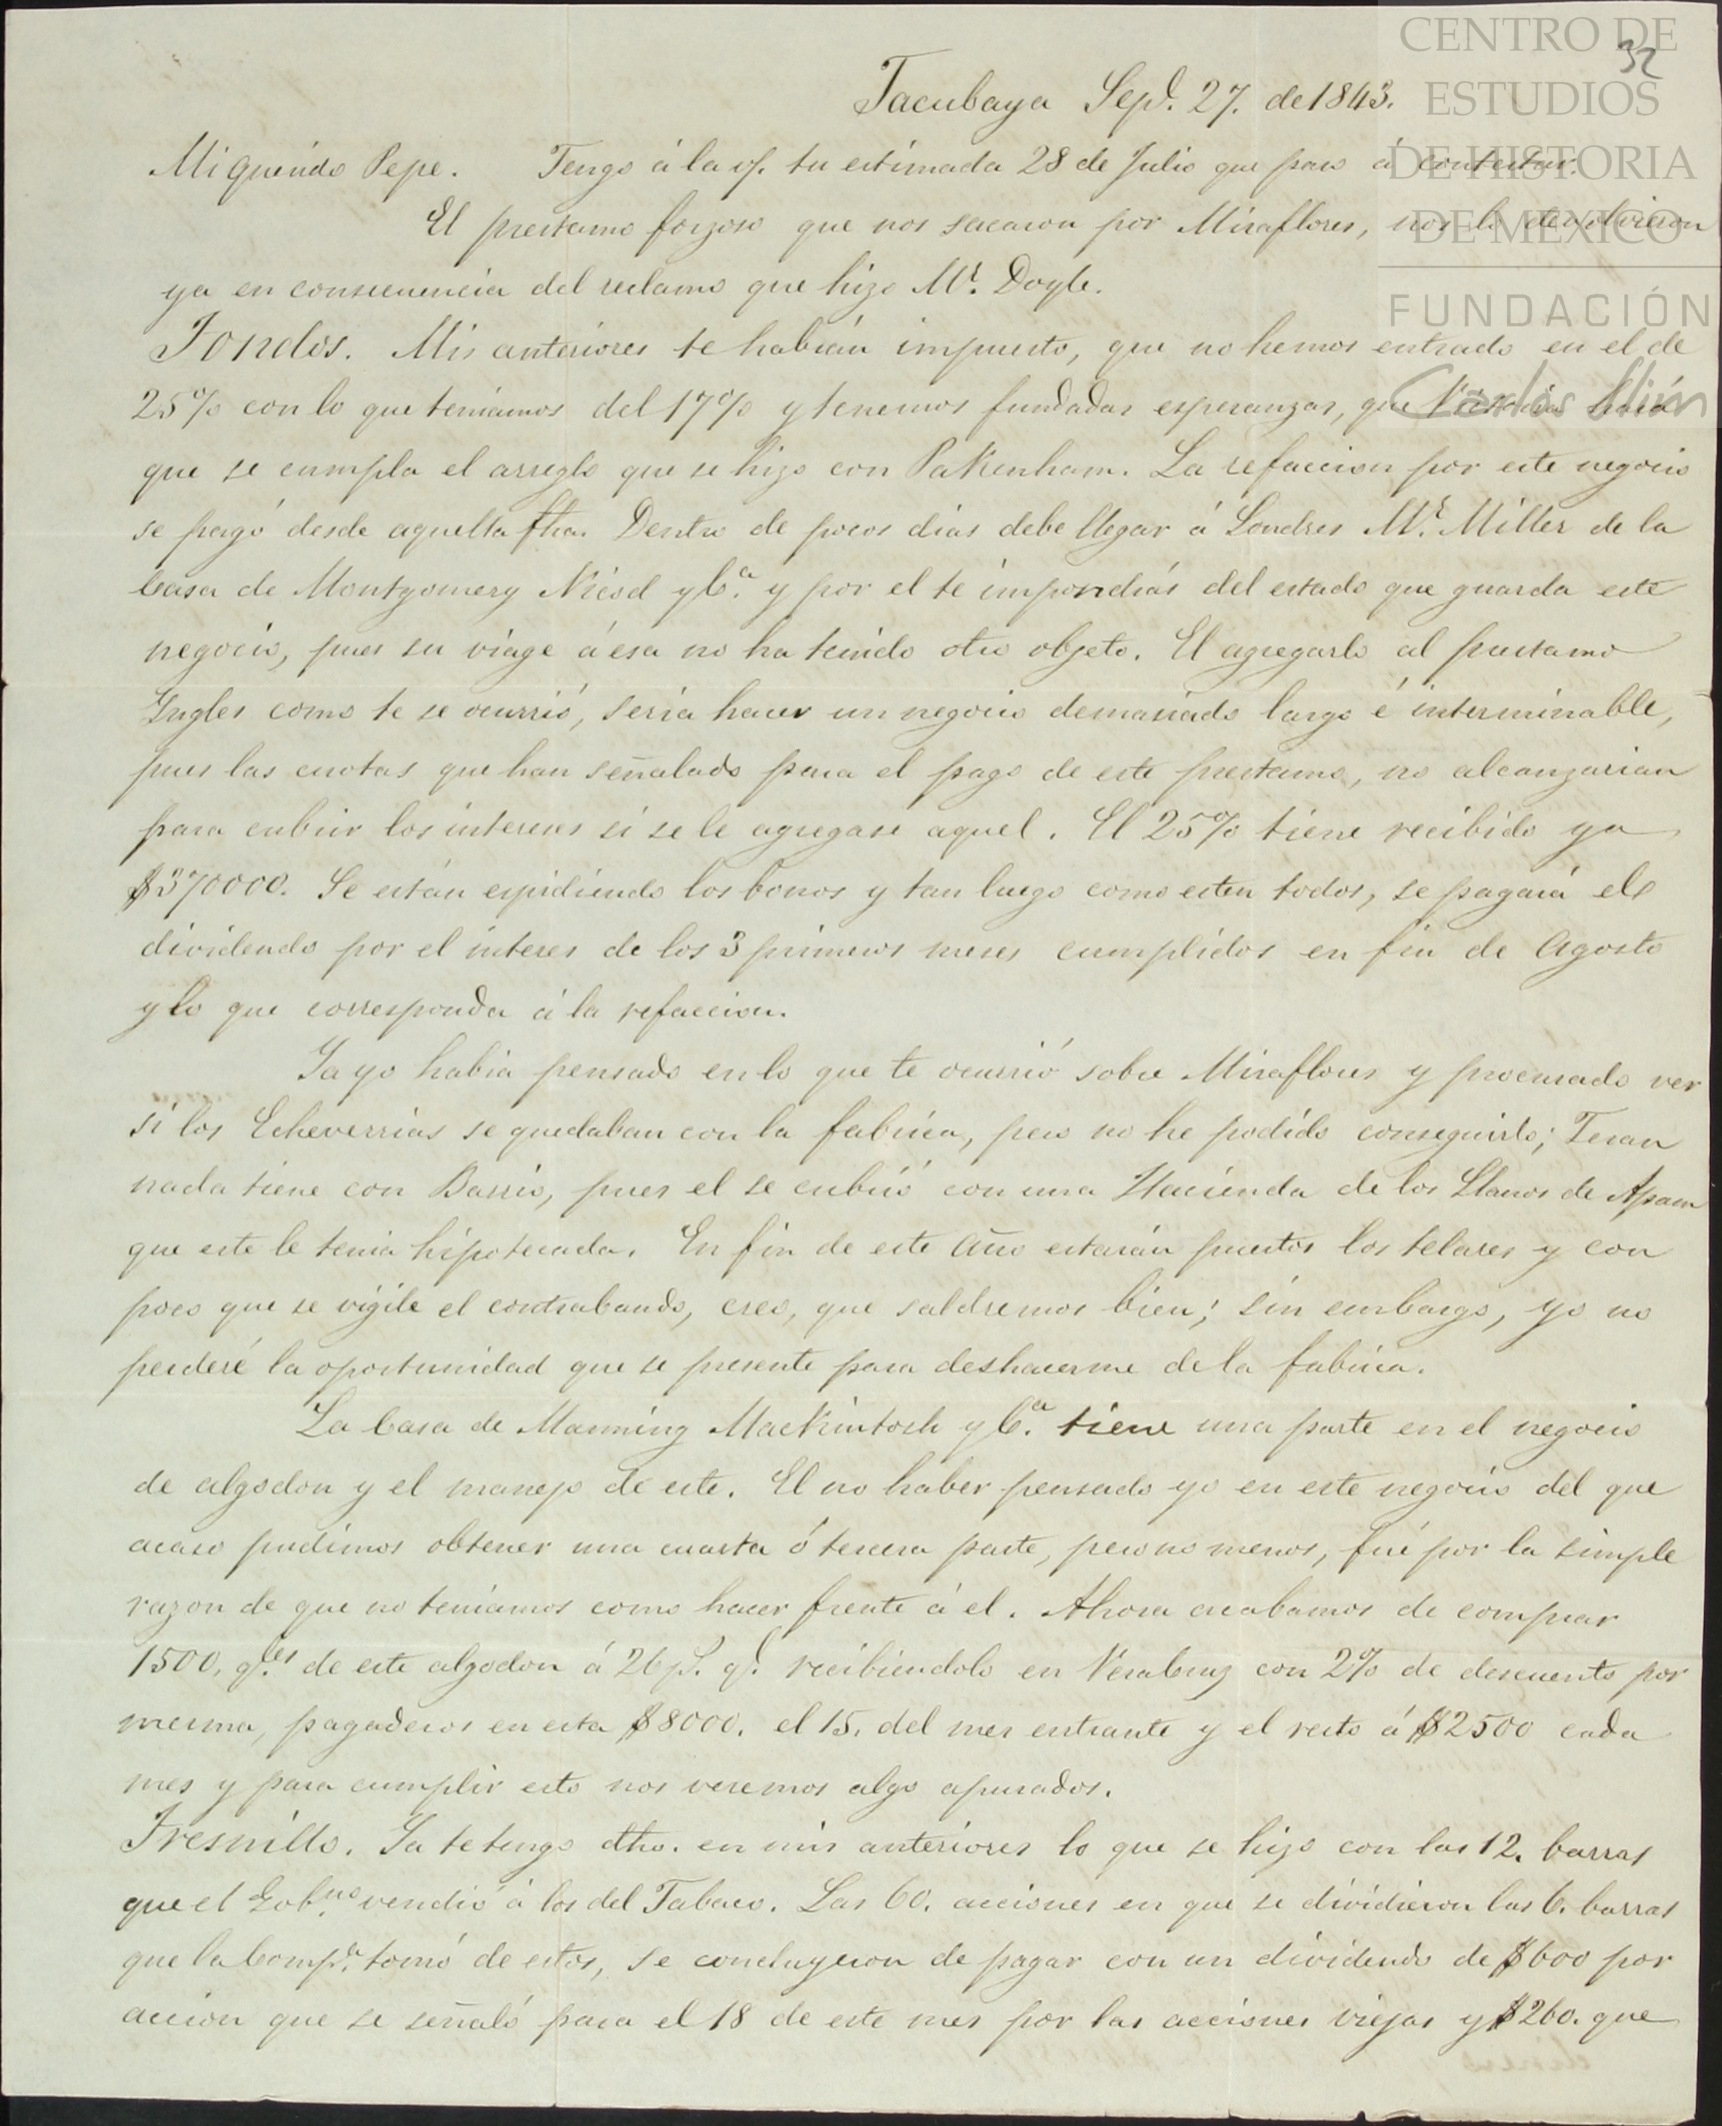 CENTRO DE
ESTUDIOS
DE HISTORIA
DE MÉXICO
FUNDACIÓN
Carlos Slim
32
Tacubaya Sept. 27. de 1843.
Mi querido Pepe. Tengo á la vf. tu estimada 28 de Julio que paso á contestar.
El prestamo forzoso que nos sacaron por Miraflores, nos lo devolvieron
ya en consecuencia del reclamo que hizo Mr. Doyle.
Fondos. Mis anteriores te habrán impuesto, que no hemos entrado en el de
25% con lo que teniamos del 17% y tenemos fundadas esperanzas, que hará
que se cumpla el arreglo que se hizo con Pakenham. La refaccion por este negocio
se pagó desde aquella fha. Dentro de pocos dias debe llegar á Londres Mr. Miller de la
Casa de Montgomery Nicod y Ca. y por el te impondrás del estado que guarda este
negocio, pues su viage á esa no ha tenido otro objeto. El agregarlo al prestamo
Ingles como te se ocurrió, seria hacer un negocio demasiado largo é interminable,
pues las cuotas que han señalado para el pago de este prestamo, no alcanzarian
para cubrir los intereses si se le agregase aquel. El 25% tiene recibido ya
$370000. Se están espidiendo los bonos y tan luego como esten todos, se pagará el
dividendo por el interes de los 3 primeros meses cumplidos en fin de Agosto
y lo que corresponda á la refaccion.
Ya yo habia pensado en lo que te ocurrió sobre Miraflores y procurado ver
si los Echeverrias se quedaban con la fabrica, pero no he podido conseguirlo; Teran
nada tiene con Barrio, pues el se cubrió con una Hacienda de los Llanos de Apam
que este le tenia hipotecada. En fin de este año estarán puestos los telares y con
poco que se vigile el contrabando, creo, que saldremos bien; sin embargo, yo no
perderé la oportunidad que se presente para deshacerme de la fabrica.
La Casa de Manning Mackintosh y Ca. tiene una parte en el negocio
de algodon y el manejo de este. El no haber pensado yo en este negocio del que
acaso pudimos obtener una cuarta ó tercera parte, pero no menos, fué por la simple
razon de que no teniamos como hacer frente á el. Ahora acabamos de comprar
1500, qles de este algodon á 26 ps. ql. recibiendolo en Veracruz con 2% de descuento por
merma, pagaderos en esta $8000. el 15. del mes entrante y el resto á $2500 cada
mes y para cumplir esto nos veremos algo apurados.
Fresnillo. Ya te tengo dho. en mis anteriores lo que se hizo con las 12. barras
que el Gobno. vendió á los del Tabaco. Las 60. acciones en que se dividieron las 6. barras
que la Compa. tomó de estos, se concluyeron de pagar con un dividendo de $600 por
accion que se señaló para el 18 de este mes por las acciones viejas y $260. que